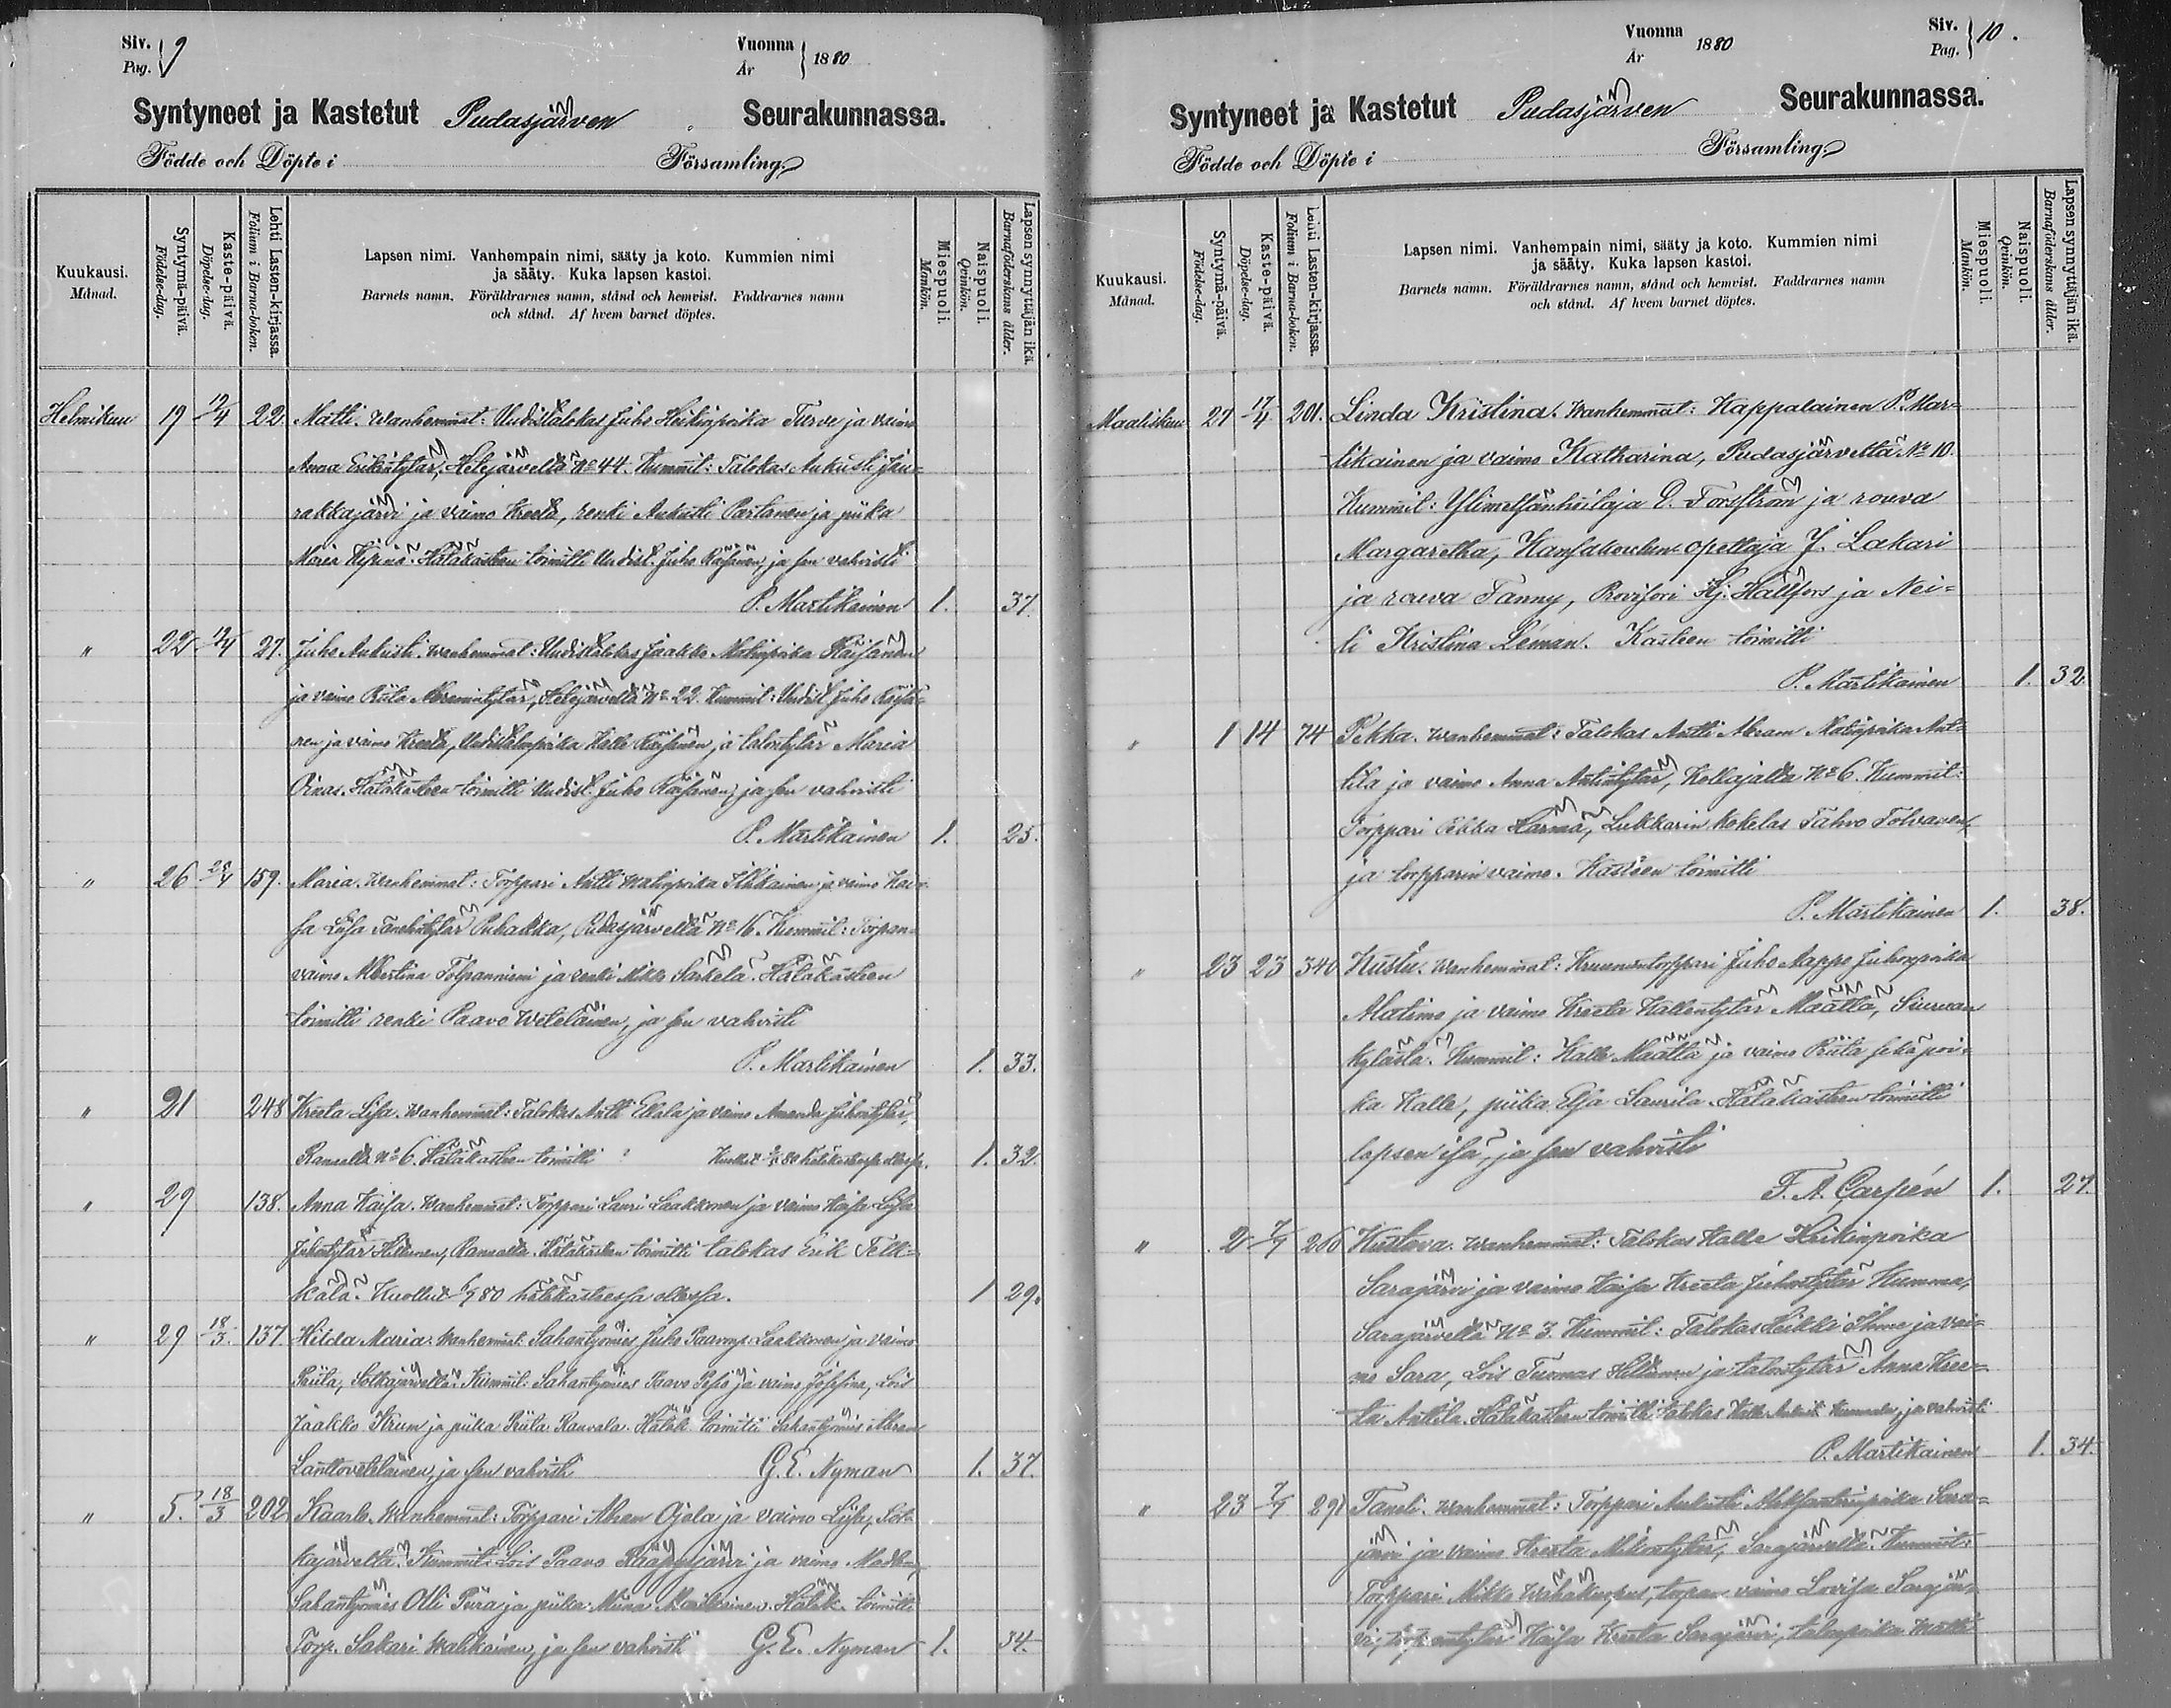 Siv. Pag. 9
Vuonna År 1880
Syntyneet ja Kastetut Pudasjärven Seurakunnassa.
Födde och Döpte i Församling
Kuukausi. Månad.
Syntymä-päivä. Födelse-dag.
Kaste-päivä. Döpelse-dag.
Lehti Lasten-kirjassa. Folium i Barna-boken.
Lapsen nimi. Vanhempain nimi, sääty ja koto. Kummien nimi
ja sääty. Kuka lapsen kastoi.
Barnets namn. Föräldrarnes namn, stånd och hemvist. Faddrarnes namn
och stånd. Af hvem barnet döptes.
Miespuoli. Mankön.
Naispuoli. Qvinkön.
Lapsen synnyttäjän ikä. Barnaföderskans ålder.
Helmikuu 19 12/4 22. Matti. Wanhemmat: Uudistalokas Juho Heikinpoika Turve ja vaimo
Anna Erikintytär, Hetejärveltä No 44. Kummit: Talokas Aukusti Jau-
rakkajärvi ja vaimo Kreeta, renki Aukusti Partanen ja piika
Maria . Hätäkasteen toimitti Uudist. Juho Räisänen, ja sen vahvisti
P. Martikainen 1. 37.
" 22 12/4 27. Juho Aukusti. Wanhemmat: Uudistalokas Jaakko Matinpoika Räisänen
ja vaimo Riita Abramintytär, Hetejärveltä No 22. Kummit: Uudist. Juho Räisä-
nen ja vaimo Kreeta, Uudistalonpoika Kalle Räisänen ja talontytär Maria
Oinas. Hätäkasteen toimitti Uudist. Juho Räisänen, ja sen vahvisti
P. Martikainen 1. 25.
" 26 28/4 159. Maria. Wanhemmat: Torppari Antti Matinpoika Ikkainen ja vaimo Kai-
sa Liisa Tanelintytär Puhakka, Pudasjärveltä No 16. Kummit: Torpan-
vaimo Albertina Tolpanniemi ja renki Mikko Särkelä. Hätäkasteen
toimitti renki Paavo Weteläinen, ja sen vahvisti
P. Martikainen 1. 33.
" 21 248 Kreeta Liisa. Wanhemmat: Talokas Antti Ellala ja vaimo Amanda Juhontytär,
Ranualta No 6. Hätäkasteen toimitti 80 hätäkasteessa ollessa. 1. 32.
" 29 138. Anna Kaisa. Wanhemmat: Torppari Lauri Laakkonen ja vaimo Kaisa Liisa
Juhontytär Hiltunen, Ranualta. Hätäkasteen toimitti talokas Erik Telk-
kälä. Kuollut 80 hätäkasteessa ollessa. 1 29.
" 29 18/3 137. Hilda Maria. Wanhemmat: Sahantyömies Juho Paavonp. Laakkonen ja vaimo
Riita, Sotkajärveltä. Kummit: Sahantyömies Paavo ja vaimo Josefina, Lois
Jaakko Krum ja piika Riita Rauvala. Hätäk. toimitti Sahantyömies Abram
Lanttoveteläinen, ja sen vahvisti G. E. Nyman 1. 37.
" 5. 18/3 202. Kaarlo. Wanhemmat: Torppari Abram Ojala ja vaimo Liisa, Sot-
kajärveltä. Kummit: Lois Paavo Rääpysjärvi ja vaimo Madle-
Sahantyömies Olli Piira ja piika Miina Moilainen. Hätäk. toimitti
Torp. Sakari Matikainen, ja sen vahvisti G. E. Nyman 1. 34.
Vuonna År 1880
Siv. Pag. 10.
Syntyneet ja Kastetut Pudasjärven Seurakunnassa.
Födde och Döpte i Församling
Kuukausi. Månad.
Syntymä-päivä. Födelse-dag.
Kaste-päivä. Döpelse-dag.
Lehti Lasten-kirjassa. Folium i Barna-boken.
Lapsen nimi. Vanhempain nimi, sääty ja koto. Kummien nimi
ja sääty. Kuka lapsen kastoi.
Barnets namn. Föräldrarnes namn, stånd och hemvist. Faddrarnes namn
och stånd. Af hvem barnet döptes.
Miespuoli. Mankön.
Naispuoli. Qvinkön.
Lapsen synnyttäjän ikä. Barnaföderskans ålder.
Maaliskuu 27 17/4 201. Linda Kristina. Wanhemmat: Kappalainen P. Mar-
tikainen ja vaimo Katharina, Pudasjärveltä No 10.
Kummit: Ylimetsänhoitaja E. Forsström ja rouva
Margaretha, Kansakoulun opettaja J. Lakari
ja rouva Fanny, Provisori Hj. Hällfors ja Nei-
ti Kristina Leman. Kasteen toimitti
P. Martikainen 1. 32.
" 1 14 74 Pekka. Wanhemmat: Talokas Antti Abram Matinpoika Ant-
tila ja vaimo Anna Antintytär, Kollajalta No 6. Kummit:
Torppari Pekka Harma, Lukkarin kokelas Tahvo Tolvanen,
ja torpparin vaimo. Kasteen toimitti
P. Martikainen 1. 38.
" 23 23 340 Kustu. Wanhemmat: Kruununtorppari Juho Aappo Juhonpoika
Alatimo ja vaimo Kreeta Kallentytär Määttä, Siuruan
kylästä. Kummit: Kalle Määttä ja vaimo Riita sekä poi-
ka Kalle, piika Elsa Laurila. Hätäkasteen toimitti
lapsen isä, ja sen vahvisti
F. A. Carpén 1. 27.
" 2 7/4 266 Kustava. Wanhemmat: Talokas Kalle Heikinpoika
Sarajärvi ja vaimo Kaisa Kreeta Juhontytär Kumma,
Sarajärveltä No 3. Kummit: Talokas Heikki Ihme ja vai-
mo Sara, Lois Tuomas Hiltunen ja talontytär Anna Kree-
ta Anttila. Hätäkasteen toimitti talokas Kalle Antti Kummala, ja vahvisti
P. Martikainen 1. 34.
" 23 7/4 291 Taneli. Wanhemmat: Torppari Aukusti Aleksanterinpoika Sara-
järvi ja vaimo Kreeta Mikontytär, Sarajärveltä. Kummit:
Torppari Mikko , torpan vaimo Lovisa Sarajär-
vi, Kaisa Kreeta Sarajärvi, talonpoika Matti